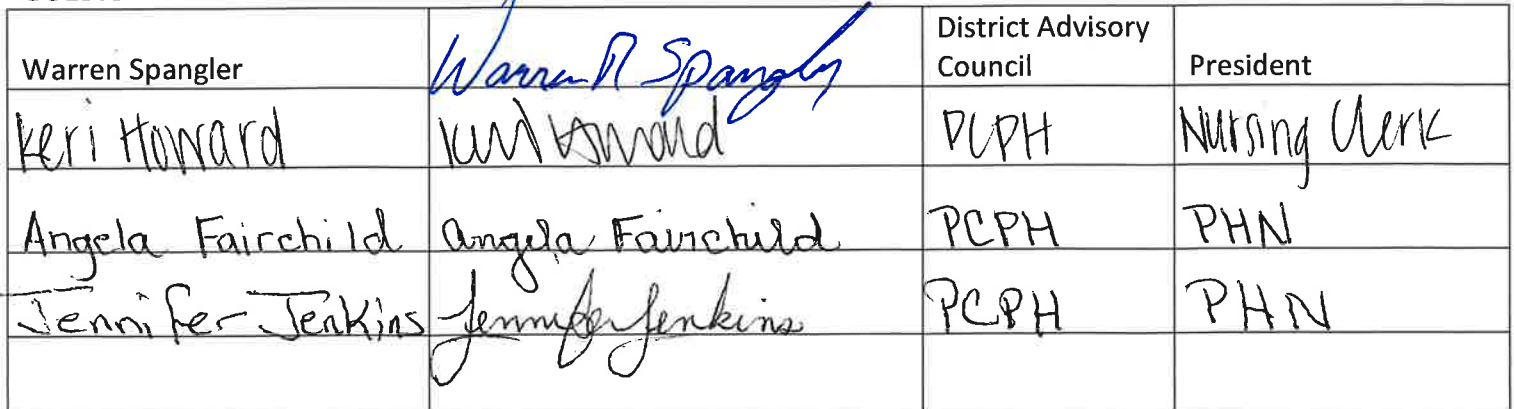 Warren Spangler Warren R Spangler District Advisory Council President
Keri Howard Keri Howard PCPH Nursing Clerk
Angela Fairchild Angela Fairchild PCPH PHN
Jennifer Jenkins Jennifer Jenkins PCPH PHN